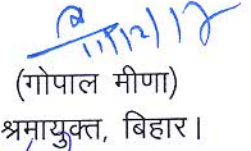 11/12/17
(गोपाल मीणा)
श्रमायुक्त, बिहार।